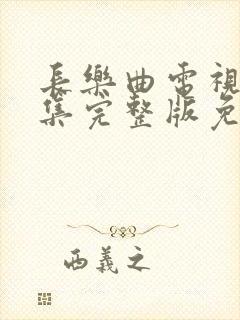 長樂曲電視
集完整版免
西義之